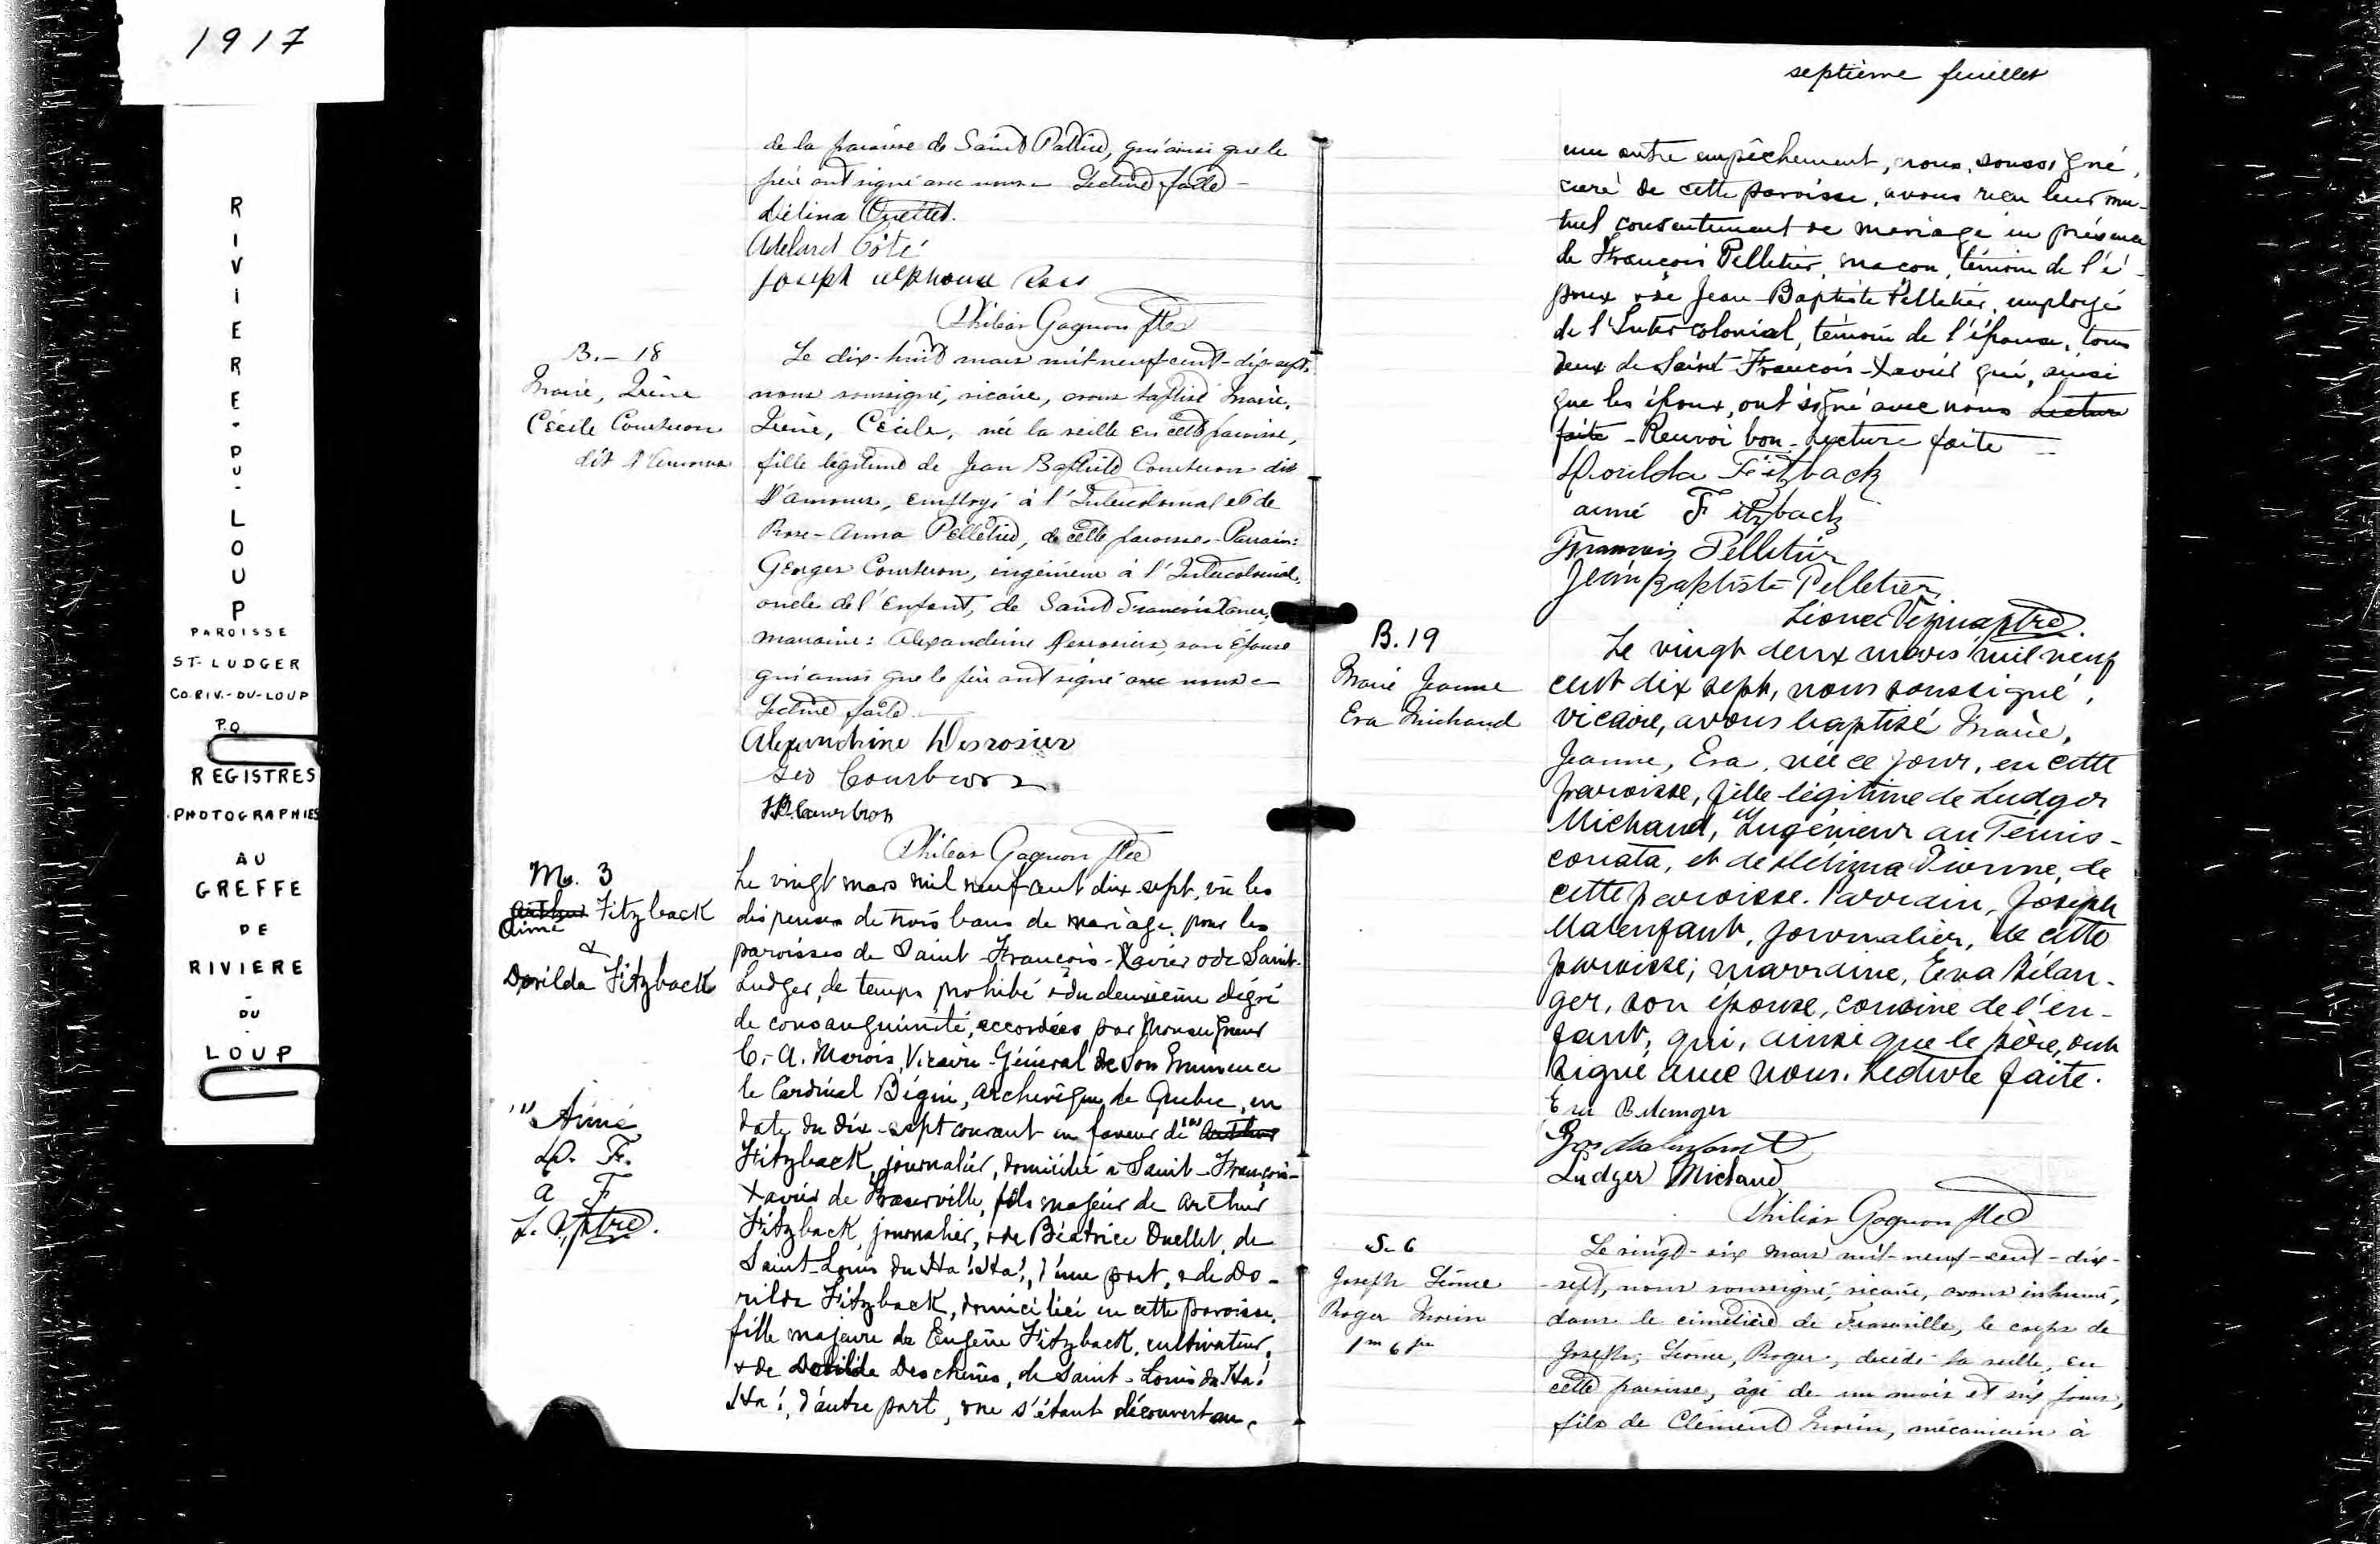 1917
RIVIERE-DU-LOUP
PAROISSE
ST-LUDGER
CO. RIV.-DU-LOUP
P.Q.
REGISTRES
PHOTOGRAPHIES
AU
GREFFE
DE
RIVIERE
-
DU
LOUP
de la paroisse de Saint Patrice, qui ainsi que le
père ont signé avec nous - Lecture faite -
Délina Ouellet.
Adelard Côté
Joseph Alphonse
Philias Gagnon Ptre
B. - 18
Marie, Irène
Cécile Courbron
dit D'Amours
Le dix-huit mars mil-neuf-cent-dix-sept,
nous soussigné, vicaire, avons baptisé Marie,
Irène, Cécile, née la veille en cette paroisse,
fille légitime de Jean Baptiste Courbron dit
D'amours, employé à l'Intercolonial et de
Rose-Anna Pelletier, de cette paroisse - Parrain:
Georges Courbron, ingénieur à l'Intercolonial,
oncle de l'enfant, de Saint François Xavier,
marraine: Alexandrine Desrosiers, son épouse
qui ainsi que le père ont signé avec nous -
Lecture faite -
Alexandrine Desrosier
Geo Courbron
J.B. Courbron
Philias Gagnon Ptre
M. 3
Arthur Fitzback
Aimé
&
Dorilda Fitzback
Le vingt mars mil neuf cent dix-sept, vu les
dispenses de trois bans de mariage, pour les
paroisses de Saint-François-Xavier & de Saint-
Ludger, de temps prohibé & du deuxième dégré
de consanguinité, accordées par Monseigneur
C.-A. Marois, Vicaire-Général de Son Eminence
le Cardinal Bégin, archevêque de Quebec, en
date du dix-sept courant en faveur de Arthur
Fitzback, journalier, domicilié à Saint-François-
Xavier de Fraserville, fils majeur de Arthur
Fitzback, journalier, & de Béatrice Ouellet, de
Saint-Louis du Ha! Ha!, d'une part, & de Do-
rilda Fitzback, domiciliée en cette paroisse,
fille majeure de Eugène Fitzback, cultivateur,
& de Deschênes, de Saint-Louis du Ha!
Ha!, d'autre part, & ne s'étant découvert au-
Aimé
D. F.
A F
L. V. ptre.
septième feuillet
cun autre empêchement, nous, soussigné,
curé de cette paroisse, avons reçu leur mu-
tuel consentement de mariage en présence
de François Pelletier, maçon, témoin de l'é-
poux & de Jean-Baptiste Pelletier, employé
de l'Intercolonial, témoin de l'épouse, tous
deux de Saint-François-Xavier qui, ainsi
que les époux, ont signé avec nous Lecture
faite - Renvoi bon - Lecture faite -
Dorilda Fitzback
aimé Fitzback
Francois Pelletier
Jean Baptiste Pelletier
Lionel Vezina ptre.
B. 19
Marie Jeanne
Eva Michaud
Le vingt deux mars mil neuf
cent dix sept, nous soussigné,
vicaire, avons baptisé Marie,
Jeanne, Eva, née ce jour, en cette
paroisse, fille légitime de Ludger
Michaud, Ingénieur au Témis-
couata, et de Délizna Dionne, de
cette paroisse. Parrain, Joseph
Malenfant, journalier, de cette
paroisse; marraine, Eva Bélan-
ger, son épouse, cousine de l'en-
fant, qui, ainsi que le père, ont
signé avec nous. Lecture faite.
Eva Belanger
Jos Malenfant
Ludger Michaud
Philias Gagnon Ptre
S. 6
Joseph Léonce
Roger Morin
1 m 6 jrs
Le vingt-six mars mil-neuf-cent-dix-
-sept, nous soussigné, vicaire, avons inhumé,
dans le cimetière de Fraserville, le corps de
Joseph, Léonce, Roger, décédé la veille, en
cette paroisse, âgé de un mois et six jours,
fils de Clément Morin, mécanicien à